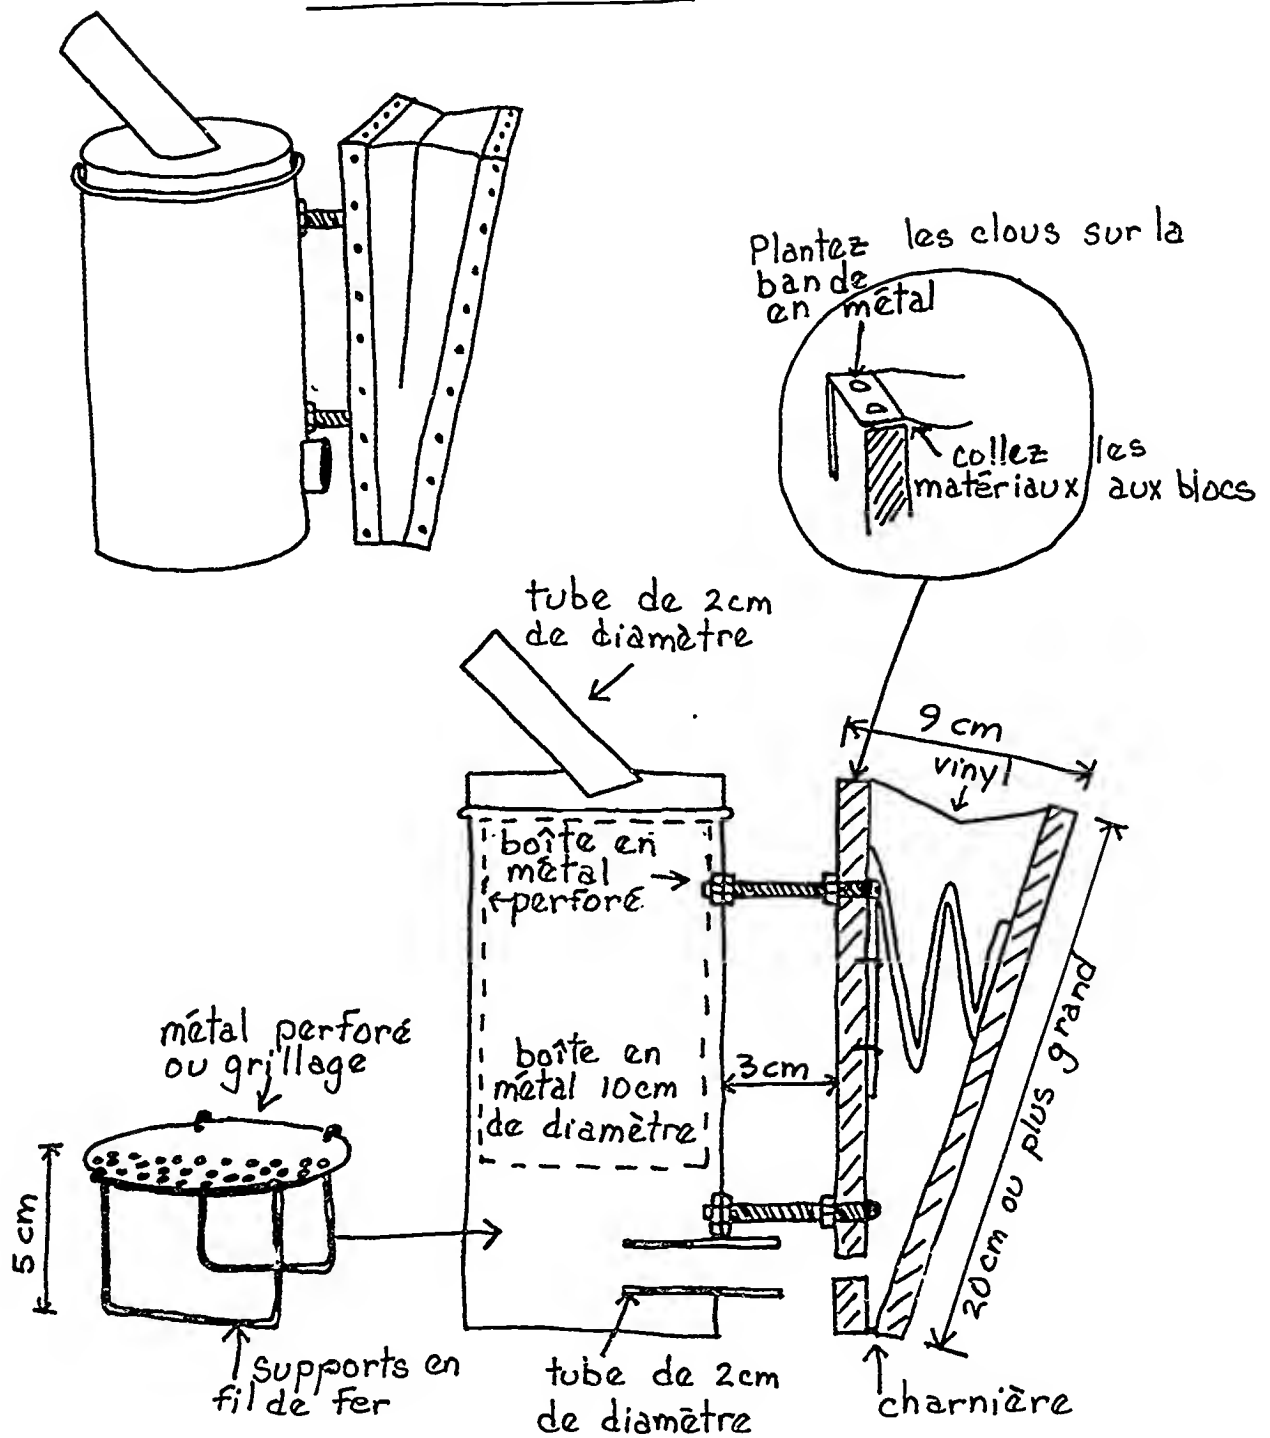 Plantez les clous sur la
bande
en métal
collez les
matériaux aux blocs
tube de 2cm
de diamètre
9 cm
vinyl
boîte en
métal
perforé
boîte en
métal 10cm
de diamètre
3cm
20cm ou plus grand
métal perforé
ou grillage
5 cm
supports en
fil de fer
tube de 2cm
de diamètre
charnière